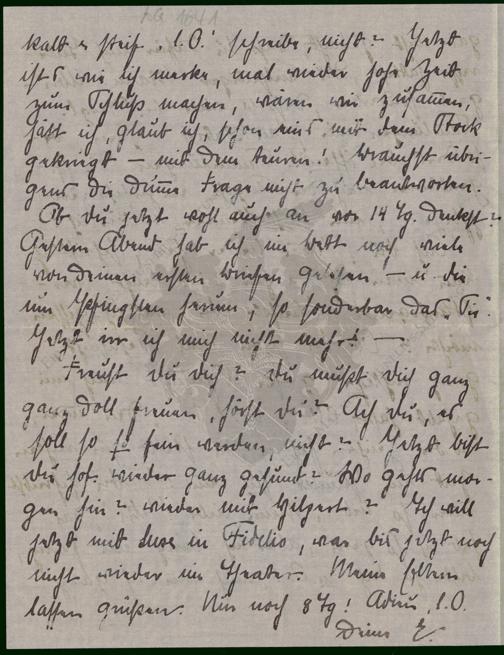 kalt & steif „l. O.“ schreibe, nicht? Jetzt
ist's wie ich merke, mal wieder hohe Zeit
zum Schluß machen, wären wir zusammen,
hätt ich, glaub ich, schon eins mit dem Stock
gekriegt – mit dem teuren! Brauchst übri-
gens die dumme Frage nicht zu beantworten.
Ob du jetzt wohl auch an vor 14 Tg. denkst?
Gestern Abend hab ich im Bett noch viele
von deinen ersten Briefen gelesen! – u. die
um Pfingsten herum, so sonderbar das „Sie“.
Jetzt irr ich mich nicht mehr! —
Freust du dich? du mußt dich ganz
ganz doll freuen, hörst du? Ach du, es
soll so fein werden, nicht? Jetzt bist
du hof. wieder ganz gesund? Wo gehts mor-
gen hin? wieder mit Hilgert? Ich will
jetzt mit in Fidelio, war bis jetzt noch
nicht wieder im Theater. Meine Eltern
lassen grüßen. Nur noch 8 Tg! Adieu, l. O.
Deine E.